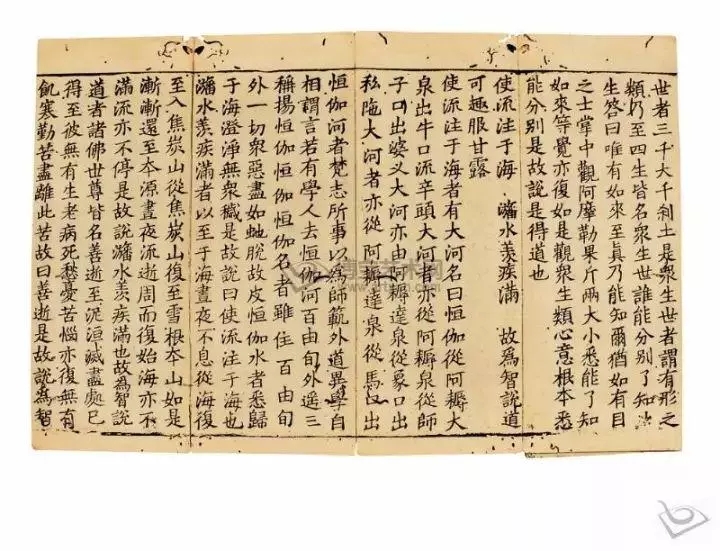 世者三千大千刹土是衆生世者謂有形之
類乃至四生皆名衆生世誰能分別了知衆
生答曰唯有如來至真乃能知爾猶如有目
之士掌中觀阿摩勒果斤兩大小悉能了知
如來等覺亦復如是觀衆生類心意根本悉
能分別是故說是得道也
使流注于海 潘水羡疾滿 故爲智說道
可趣服甘露
使流注于海者有大河名曰恒伽從阿耨大
泉出牛口流辛頭大河者亦從阿耨泉從師
子口出婆叉大河亦由阿耨達泉從象口出
私陁大河者亦從阿耨達泉從馬口出
恒伽河者梵志所事以爲師範外道異學自
相謂言若有學人去恒伽河百由旬外遥三
稱揚恒伽恒伽恒伽名者雖住百由旬
外一切衆惡盡如虵脫故皮恒伽水者悉歸
于海澄淨無衆穢是故說曰使流注于海也
潘水羡疾滿者以至于海晝夜不息從海復
至入焦炭山從焦炭山復至雪根夲山如是
漸漸還至夲源晝夜流逝周而復始海亦不
滿流亦不停是故說潘水羡疾滿也故爲智說
道者諸佛世尊皆名善逝至泥洹滅盡處已
得至彼無有生老病死愁憂苦惱亦復無有
飢寒勤苦盡離此苦故曰善逝是故說爲智